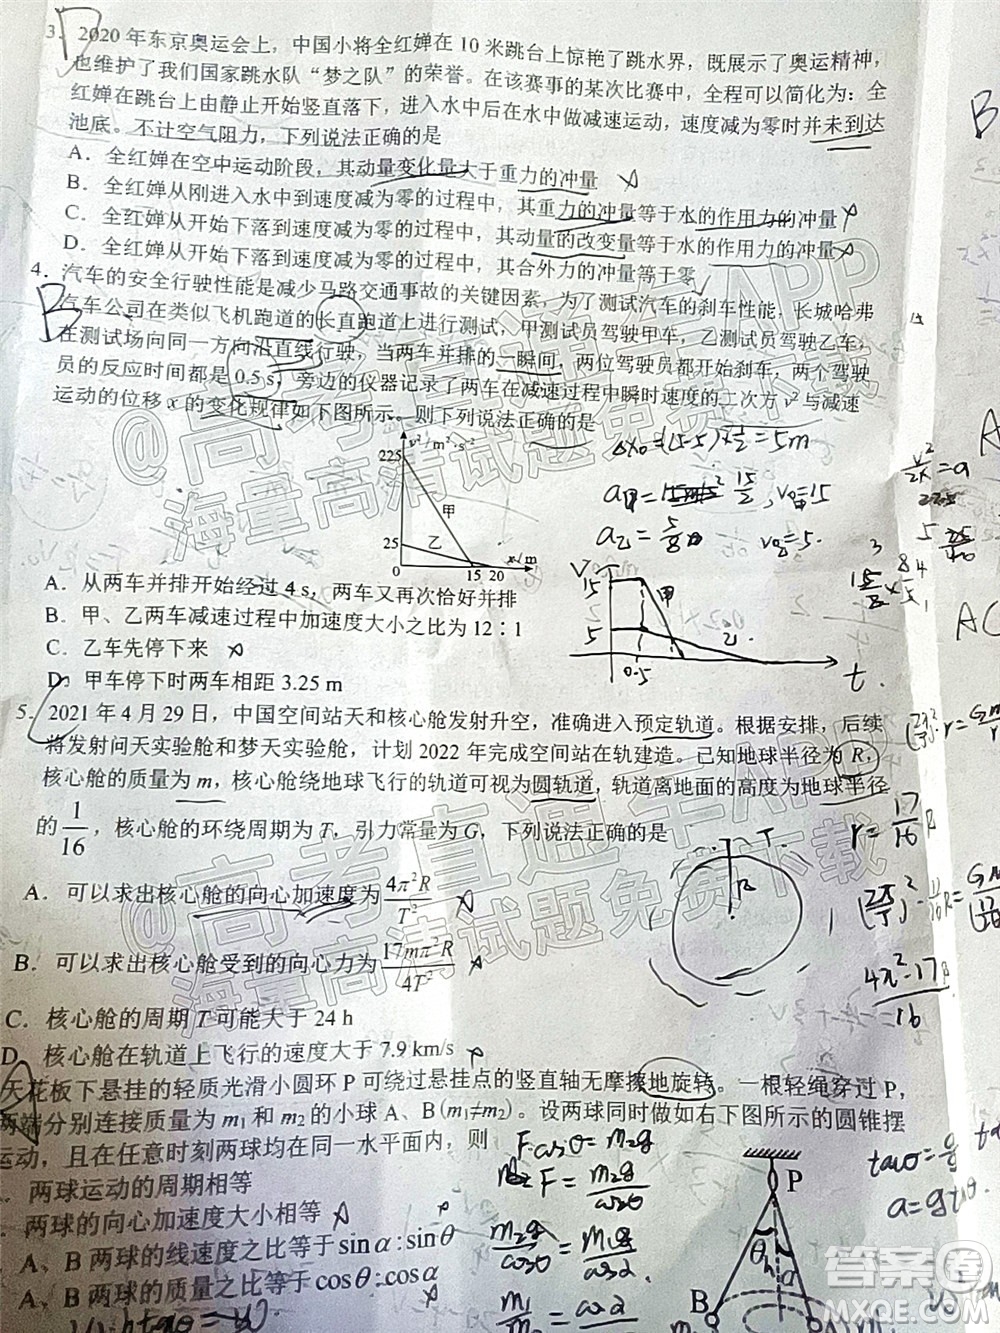 3. 2020 年东京奥运会上，中国小将全红婵在 10 米跳台上惊艳了跳水界，既展示了奥运精神，
也维护了我们国家跳水队“梦之队”的荣誉。在该赛事的某次比赛中，全程可以简化为：全
红婵在跳台上由静止开始竖直落下，进入水中后在水中做减速运动，速度减为零时并未到达
池底。不计空气阻力，下列说法正确的是
A．全红婵在空中运动阶段，其动量变化量大于重力的冲量
B．全红婵从刚进入水中到速度减为零的过程中，其重力的冲量等于水的作用力的冲量
C．全红婵从开始下落到速度减为零的过程中，其动量的改变量等于水的作用力的冲量
D．全红婵从开始下落到速度减为零的过程中，其合外力的冲量等于零
4．汽车的安全行驶性能是减少马路交通事故的关键因素，为了测试汽车的刹车性能，长城哈弗
B
汽车公司在类似飞机跑道的长直跑道上进行测试，甲测试员驾驶甲车，乙测试员驾驶乙车，
在测试场向同一方向沿直线行驶，当两车并排的一瞬间，两位驾驶员都开始刹车，两个驾驶
员的反应时间都是 0.5 s，旁边的仪器记录了两车在减速过程中瞬时速度的二次方 v² 与减速
运动的位移 x 的变化规律如下图所示。则下列说法正确的是
v²/m²·s⁻²
225
甲
25
乙
0
15 20 x/m
A．从两车并排开始经过 4 s，两车又再次恰好并排
B．甲、乙两车减速过程中加速度大小之比为 12∶1
C．乙车先停下来
D．甲车停下时两车相距 3.25 m
5．2021 年 4 月 29 日，中国空间站天和核心舱发射升空，准确进入预定轨道。根据安排，后续
将发射问天实验舱和梦天实验舱，计划 2022 年完成空间站在轨建造。已知地球半径为 R，
核心舱的质量为 m，核心舱绕地球飞行的轨道可视为圆轨道，轨道离地面的高度为地球半径
的 1/16，核心舱的环绕周期为 T，引力常量为 G，下列说法正确的是
A．可以求出核心舱的向心加速度为 4π²R/T²
B．可以求出核心舱受到的向心力为 17mπ²R/4T²
C．核心舱的周期 T 可能大于 24 h
D．核心舱在轨道上飞行的速度大于 7.9 km/s
天花板下悬挂的轻质光滑小圆环 P 可绕过悬挂点的竖直轴无摩擦地旋转。一根轻绳穿过 P，
两端分别连接质量为 m₁ 和 m₂ 的小球 A、B(m₁≠m₂)。设两球同时做如右下图所示的圆锥摆
运动，且在任意时刻两球均在同一水平面内，则
两球运动的周期相等
两球的向心加速度大小相等
A、B 两球的线速度之比等于 sinα:sinθ
A、B 两球的质量之比等于 cosθ:cosα
P
θ
h
α
B
F·cosθ = m₂g
F = m₂g/cosθ
m₂g/cosθ
m₁g/cosα
r = 17/16 R
@高考直通车APP
海量高清试题免费下载
@高考直通车APP
海量高清试题免费下载
答案圈
MXQE.COM